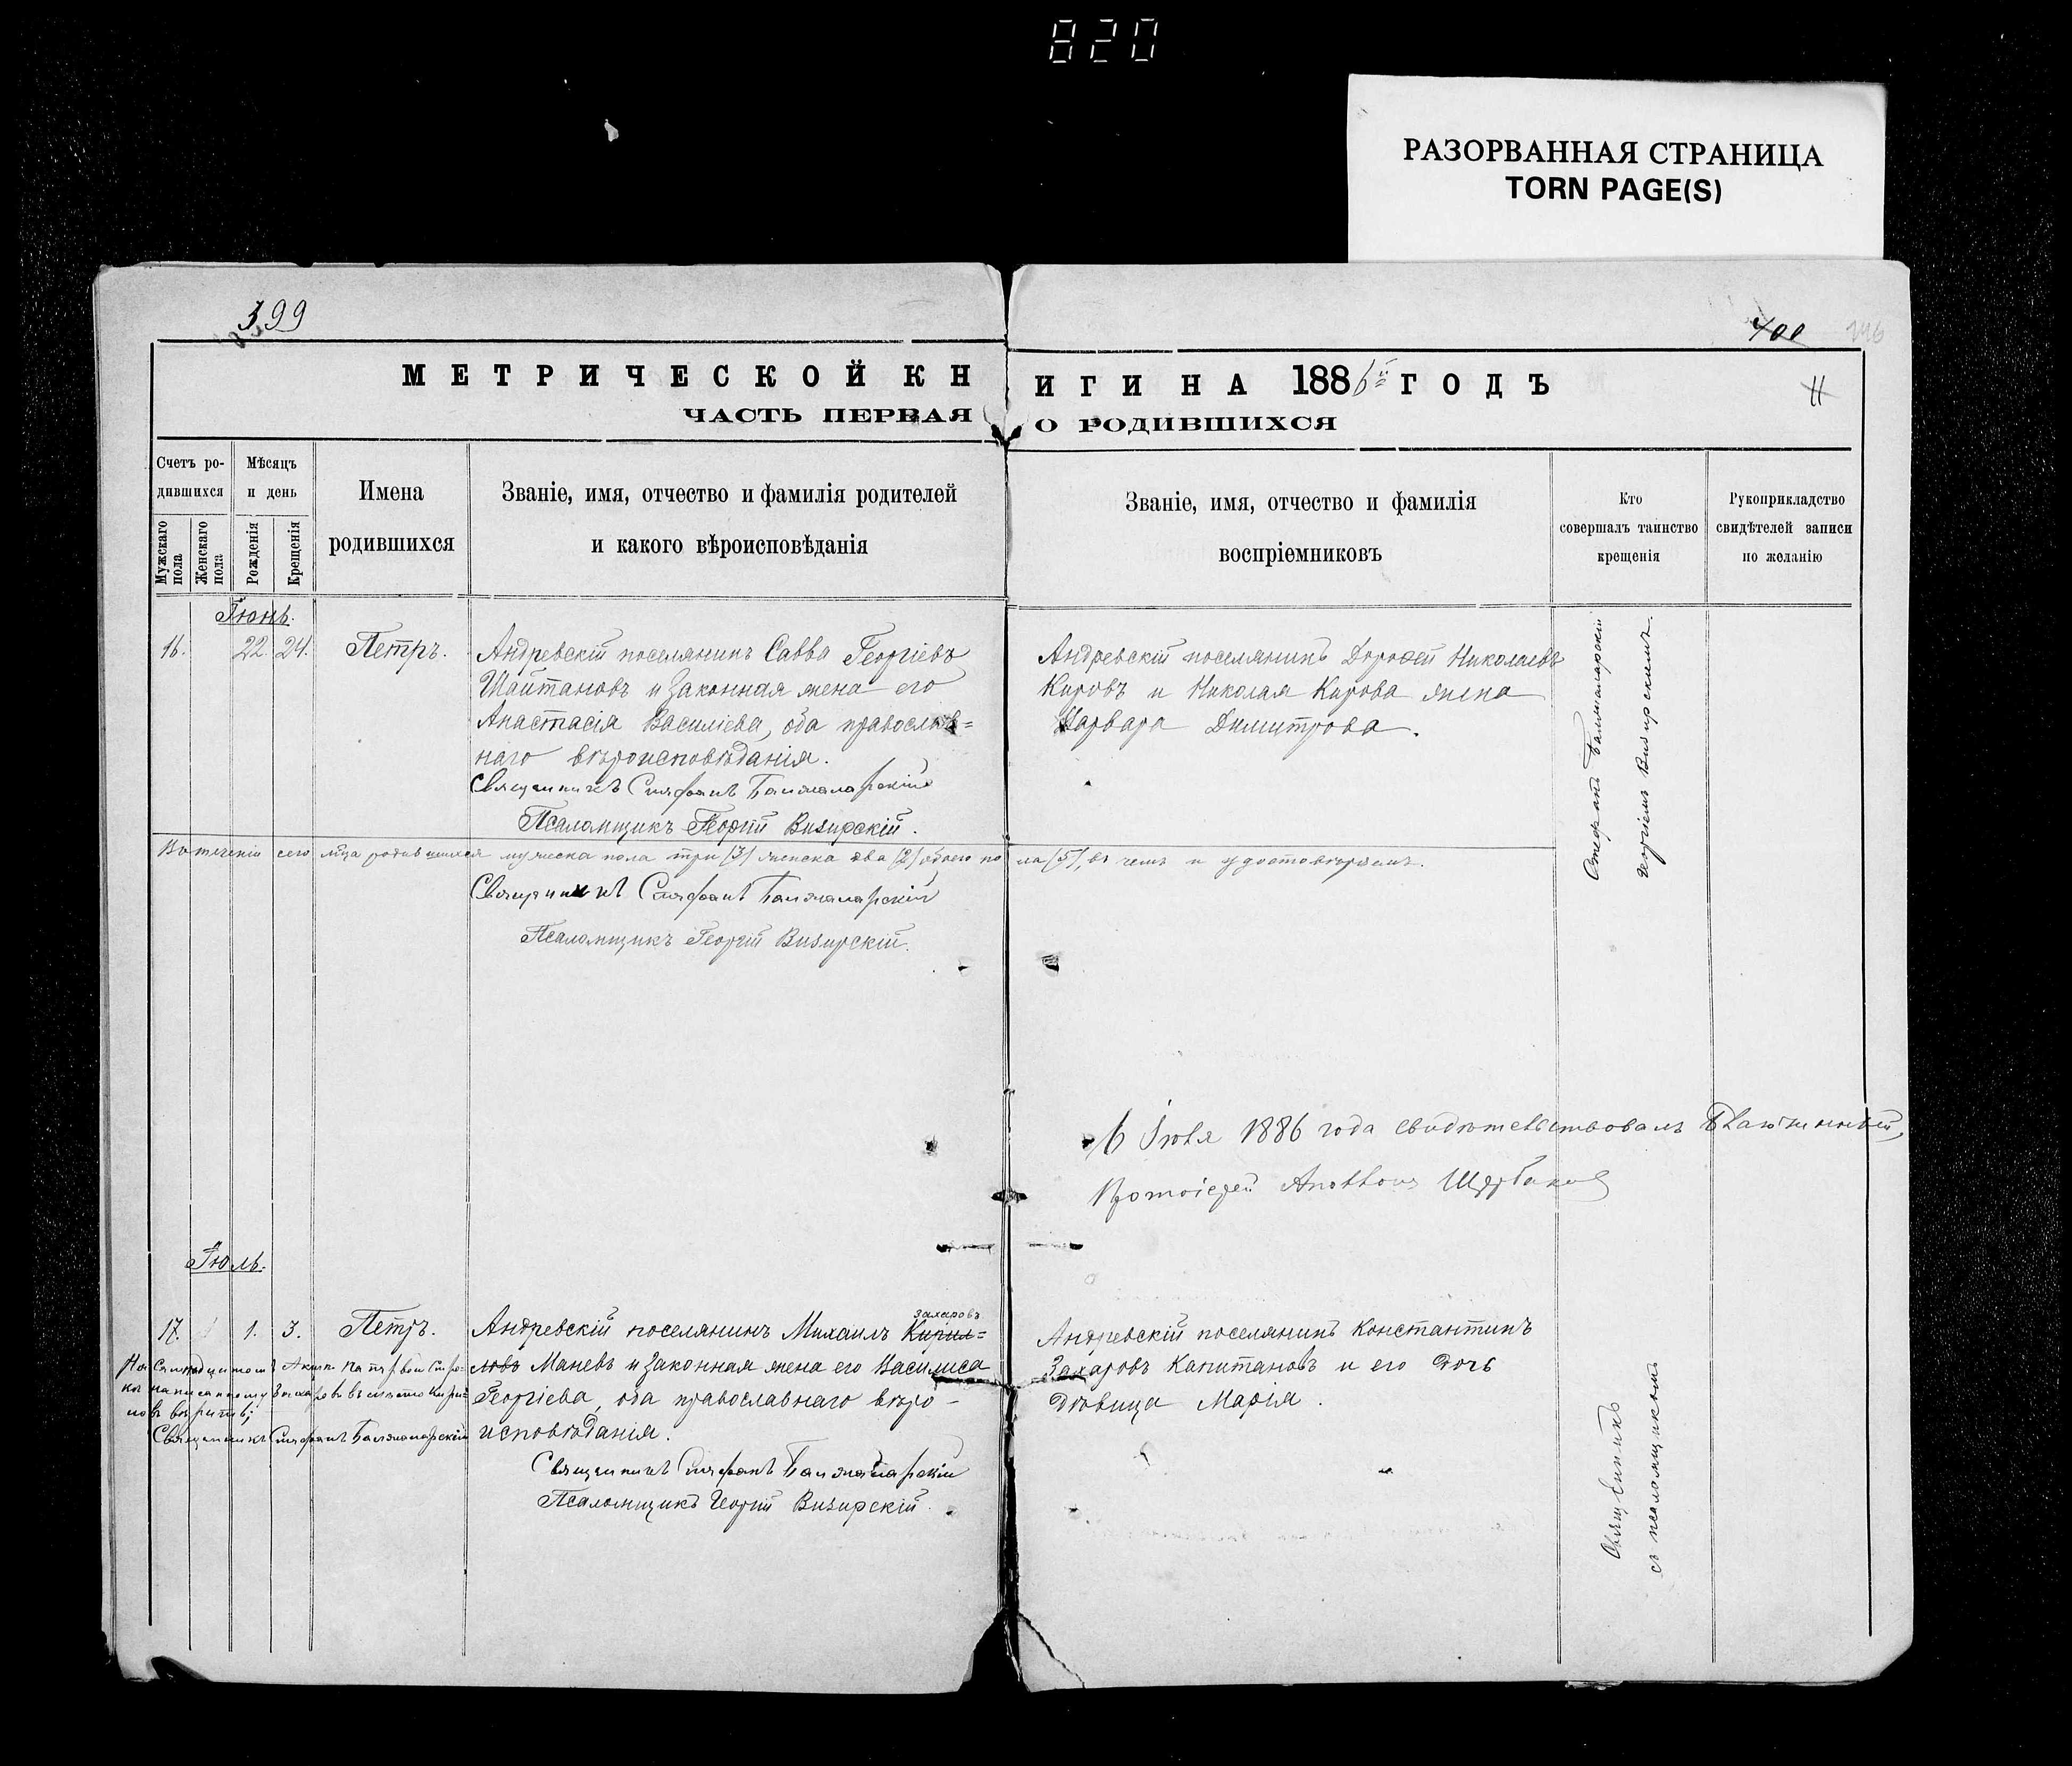 820
РАЗОРВАННАЯ СТРАНИЦА
TORN PAGE(S)
399
400
МЕТРИЧЕСКОЙ КН
ИГИ НА 1886й ГОДЪ
11
ЧАСТЬ ПЕРВАЯ
О РОДИВШИХСЯ
Счетъ ро-
дившихся
Мѣсяцъ
и день
Мужскаго
пола
Женскаго
пола
Рожденія
Крещенія
Имена
родившихся
Званіе, имя, отчество и фамилія родителей
и какого вѣроисповѣданія
Званіе, имя, отчество и фамилія
воспріемниковъ
Кто
совершалъ таинство
крещенія
Рукоприкладство
свидѣтелей записи
по желанію
Іюнь.
16. 22. 24. Петръ.
Андревскій поселянинъ Савва Георгіевъ
Шайтановъ и законная жена его
Анастасія Василіева, оба православ=
наго вѣроисповѣданія.
Священникъ Стефанъ Балжаларскій
Псаломщикъ Георгій Визирскій.
Андревскій поселянинъ Дорофей Николаевъ
Кировъ и Николая Кирова жена
Варвара Димитрова.
Стефанъ Балжаларскій
Георгіемъ Визирскимъ.
Въ теченіи сего м-ца родившихся мужеска пола три (3) женска два (2) обоего по
ла (5), въ чемъ и удостовѣряемъ.
Священникъ Стефанъ Балжаларскій
Псаломщикъ Георгій Визирскій.
6 Іюля 1886 года свидѣтельствовалъ Благочинный,
Протоіерей
Іюль.
17. 1. 3. Петръ.
Андревскій поселянинъ Михаилъ Кирил=
Захаровъ
ловъ Маневъ и законная жена его Василиса
Георгіева, оба православнаго вѣро-
исповѣданія.
Священникъ Стефанъ Балжаларскій
Псаломщикъ Георгій Визирскій.
На семнадцатомъ на первой стро-
кѣ написанному Захаровъ вмѣсто Кири-
ловъ вѣрить;
Священникъ Стефанъ Балжаларскій
Андревскій поселянинъ Константинъ
Захаровъ Капитановъ и его дочь
дѣвица Марія.
Священникъ
съ псаломщикомъ